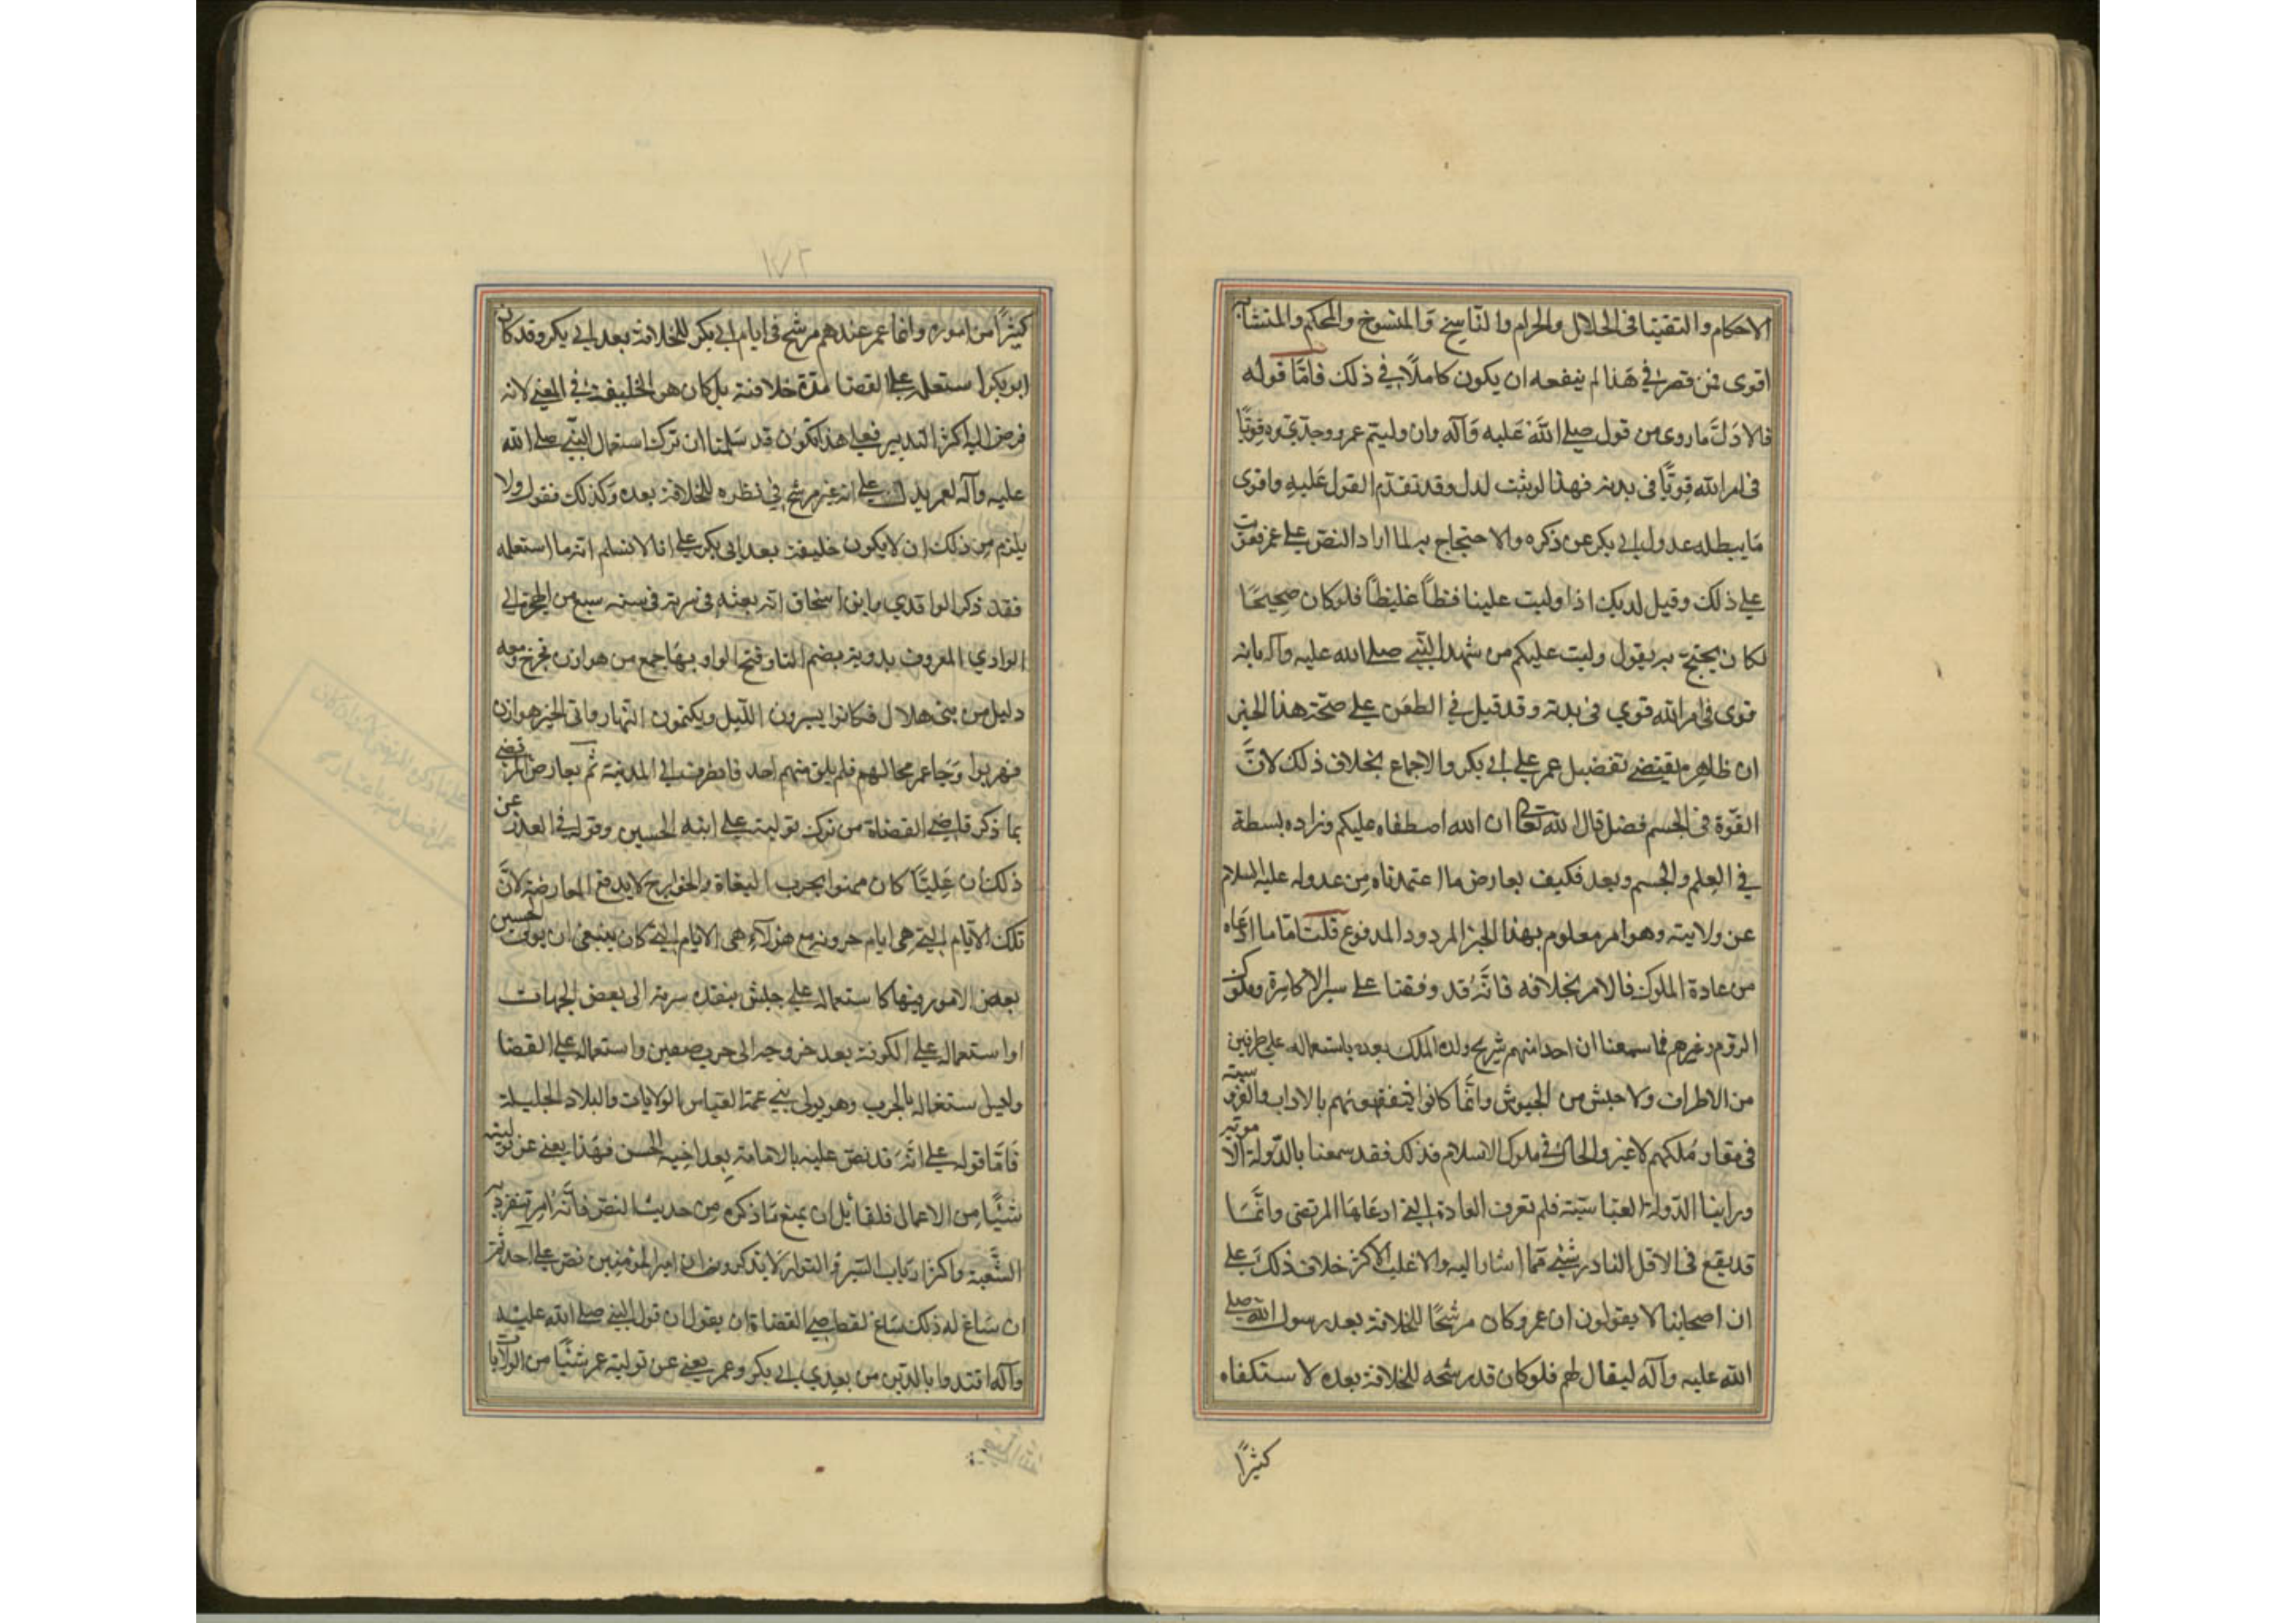 الاحكام والتفينا فى الحلال والحرام والناسخ والمنسوخ والمحكم والمتشابه
اقوى فمن قصر فى هذا لم ينفعه ان يكون كاملا فى ذلك فامّا قوله
فالادلّ ما روى من قول صلى الله عليه وآله وان وليتم عمر وجدتموه قويّا
فى امر الله قويّا فى بدنه فهذا لو ثبت لدل وقد تقدّم القول عليه واقوى
ما يبطله عدول ابى بكر عن ذكره والاحتجاج به لما اراد النص على عمر فعوتب
على ذلك وقيل له ربك اذا وليت علينا فظّاً غليظاً فلو كان صحيحًا
لكان يحتجّ به يقول وليت عليكم من شهد النبى صلى الله عليه وآله بانه
قوى فى امر الله قوي فى بدنه وقد قيل فى الطعن على صحّة هذا الخبر
ان ظاهره يقتضى تفضيل عمر على ابى بكر والاجماع بخلاف ذلك لانّ
القوّة فى الجسم فضل قال الله تعالى ان الله اصطفاه عليكم وزاده بسطة
في العلم والجسم وبعد فكيف يعارض ما اعتمدناه من عدوله عليه السلام
عن ولايته وهو امر معلوم بهذا الخبر المردود المدفوع قلت امّا ما ادعاه
من عادة الملوك فالامر بخلافه فانّه قد وقفنا على سير الاكاسرة وملوك
الروم وغيرهم فما سمعنا ان احدا منهم شرّح ولده الملك بعده باستعماله على طرف من
من الاطراف ولا جيش من الجيوش وانّما كانوا يثقفونهم بالآداب والفروسية
فى مقار ملكهم لا غير والحال فى ملوك الاسلام فذلك فقد سمعنا بالدّولة الاموّيه
وراينا الدّولة العباسيّة فلم تعرف العادة التى ادعاها المرتضى وانّما
قد يقع فى الاقل النادر شىء ممّا اشار اليه والاغلب الاكثر خلاف ذلك على
ان اصحابنا لا يقولون ان عمر وكان مرشّحًا للخلافة بعد رسول الله صلى
الله عليه وآله ليقال لهم فلو كان قد رشحه للخلافة بعده لاستكفاه
كثيرًا
١٧٢
كثيرًا من اموره وانما عمر عندهم مرشح فى ايام ابى بكر للخلافة بعد ابى بكر وقد كان
ابو بكر استعمله على القضا مدّة خلافته بل كان هو الخليفة فى المعنى لانه
فوض اليه اكثر التدبير فعلى هذا تكون قد سلمنا ان ترك استعمال النّبى صلى الله
عليه وآله لعمر يدل على انه غير مرشح فى نظره للخلافة بعده وكذلك نقول ولا
يلزم من ذلك ان لا يكون خليفة بعد ابى بكر على انا لا نسلم انه ما استعمله
فقد ذكر الواقدي وابن اسحاق انه بعثه فى سرية فى سنة سبع من الهجرة الى
الوادي المعروف ببدوية بضم التا وفتح الواو وبها جمع من هوازن فخرج ومعه
دليل من بنى هلال فكانوا يسيرون الليل ويكتمون النّهار واتى الخبر هوازن
فهربوا وجا عمر محالهم فلم يلق منهم احد فانطرف الى المدينة ثم يعارض المرتضى
بما ذكر قاضى القضاة من ترك توليته على ابنه الحسين وقوله فى العذر عن
ذلك ان عليّا كان ممنوا بحرب البغاة والخوارج لا يدفع المعارضة لانّ
تلك الايّام التى هى ايام حروبه مع هؤلآء هى الايام التى كان ينبغى ان يولّى الحسين
بعض الامور فيها كاستعماله على جيش ينفذه سرية الى بعض الجهات
او استعماله على الكوفة بعد خروجه الى حرب صفين واستعماله على القضا
وليس اشتغاله بالحرب وهو يولى بنى عمه العباس الولايات والبلاد الجليلة
فامّا قوله على انّه قد نصّ عليه بالامامة بعد اخيه الحسن فهذا يغنى عن توليته
شيئًا من الاعمال فلقائل ان يمنع ما ذكره من حديث النص فانّه امر تنفرد به
الشّيعة واكثر ارباب السّير والتواريخ لا يذكرون ان امير المؤمنين نصّ على احد ثم
ان ساغ له ذلك ساغ لقاضى القضاة ان يقول ان قول النبى صلى الله عليه
وآله اقتدوا بالذين من بعدي ابى بكر وعمر يغنى عن تولية عمر شيئًا من الولايات